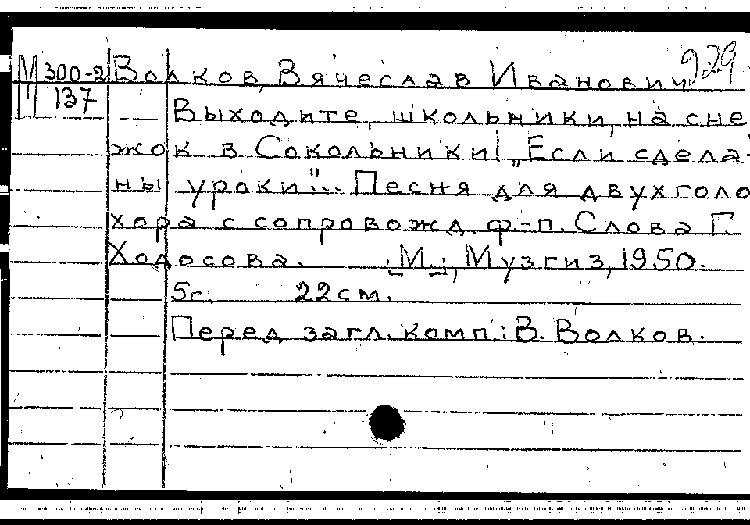 929
М 300-2 Волков, Вячеслав Иванович.
137 Выходите, школьники, на сне
жок в Сокольники! „Если сдела
ны уроки"... Песня для двухголо
хора с сопровожд. ф-п. Слова Г.
Ходосова. [М.], Музгиз, 1950.
5с. 22см.
Перед загл. комп.: В. Волков.